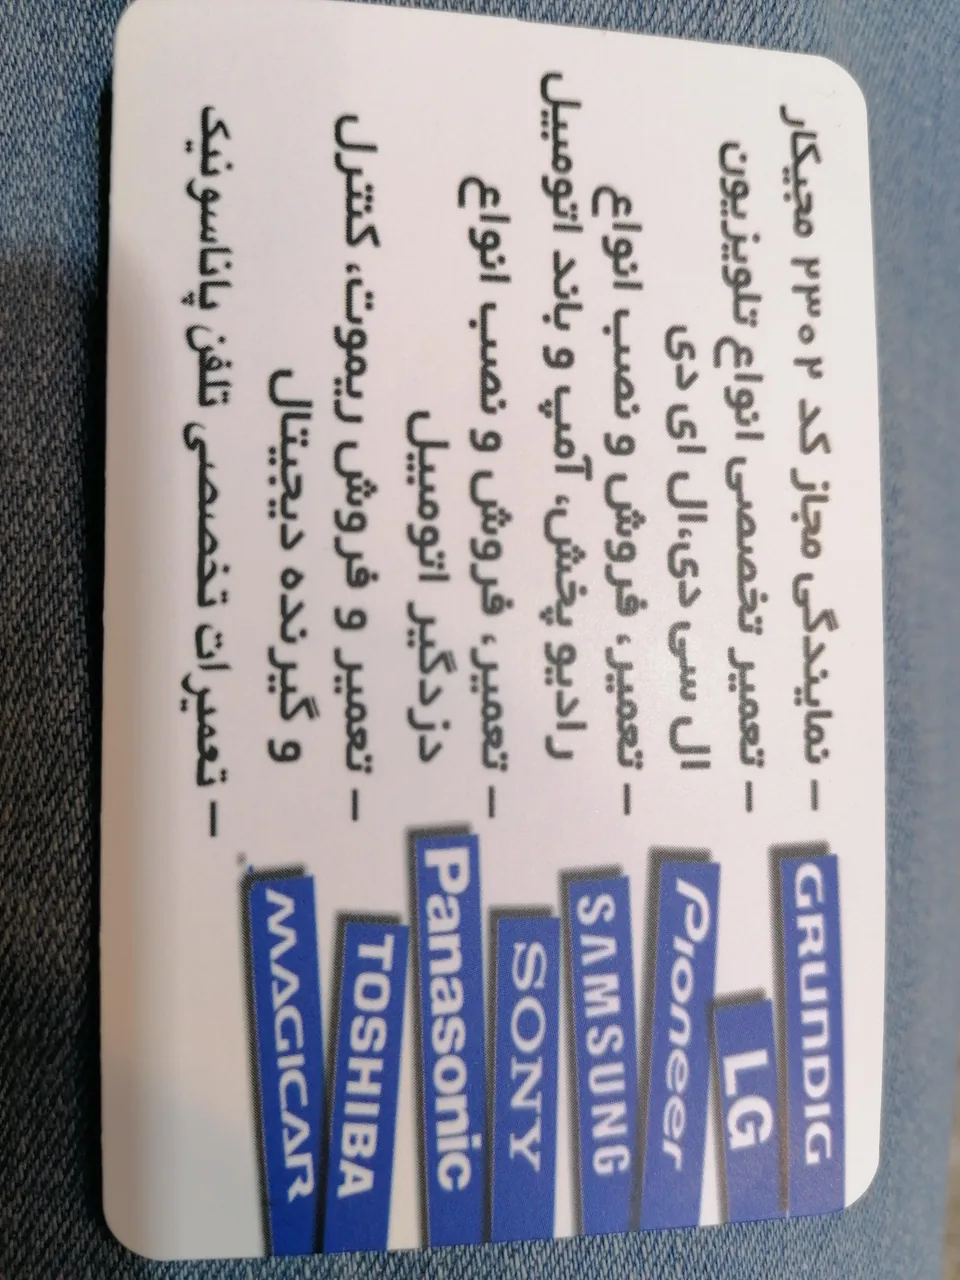 - نمایندگی مجاز کد ۲۳۰۲ مجیکار
- تعمیر تخصصی انواع تلویزیون
ال سی دی،ال ای دی
- تعمیر، فروش و نصب انواع
رادیو پخش، آمپ و باند اتومبیل
- تعمیر، فروش و نصب انواع
دزدگیر اتومبیل
- تعمیر و فروش ریموت، کنترل
و گیرنده دیجیتال
- تعمیرات تخصصی تلفن پاناسونیک
GRUNDIG
LG
Pioneer
SAMSUNG
SONY
Panasonic
TOSHIBA
MAGICAR